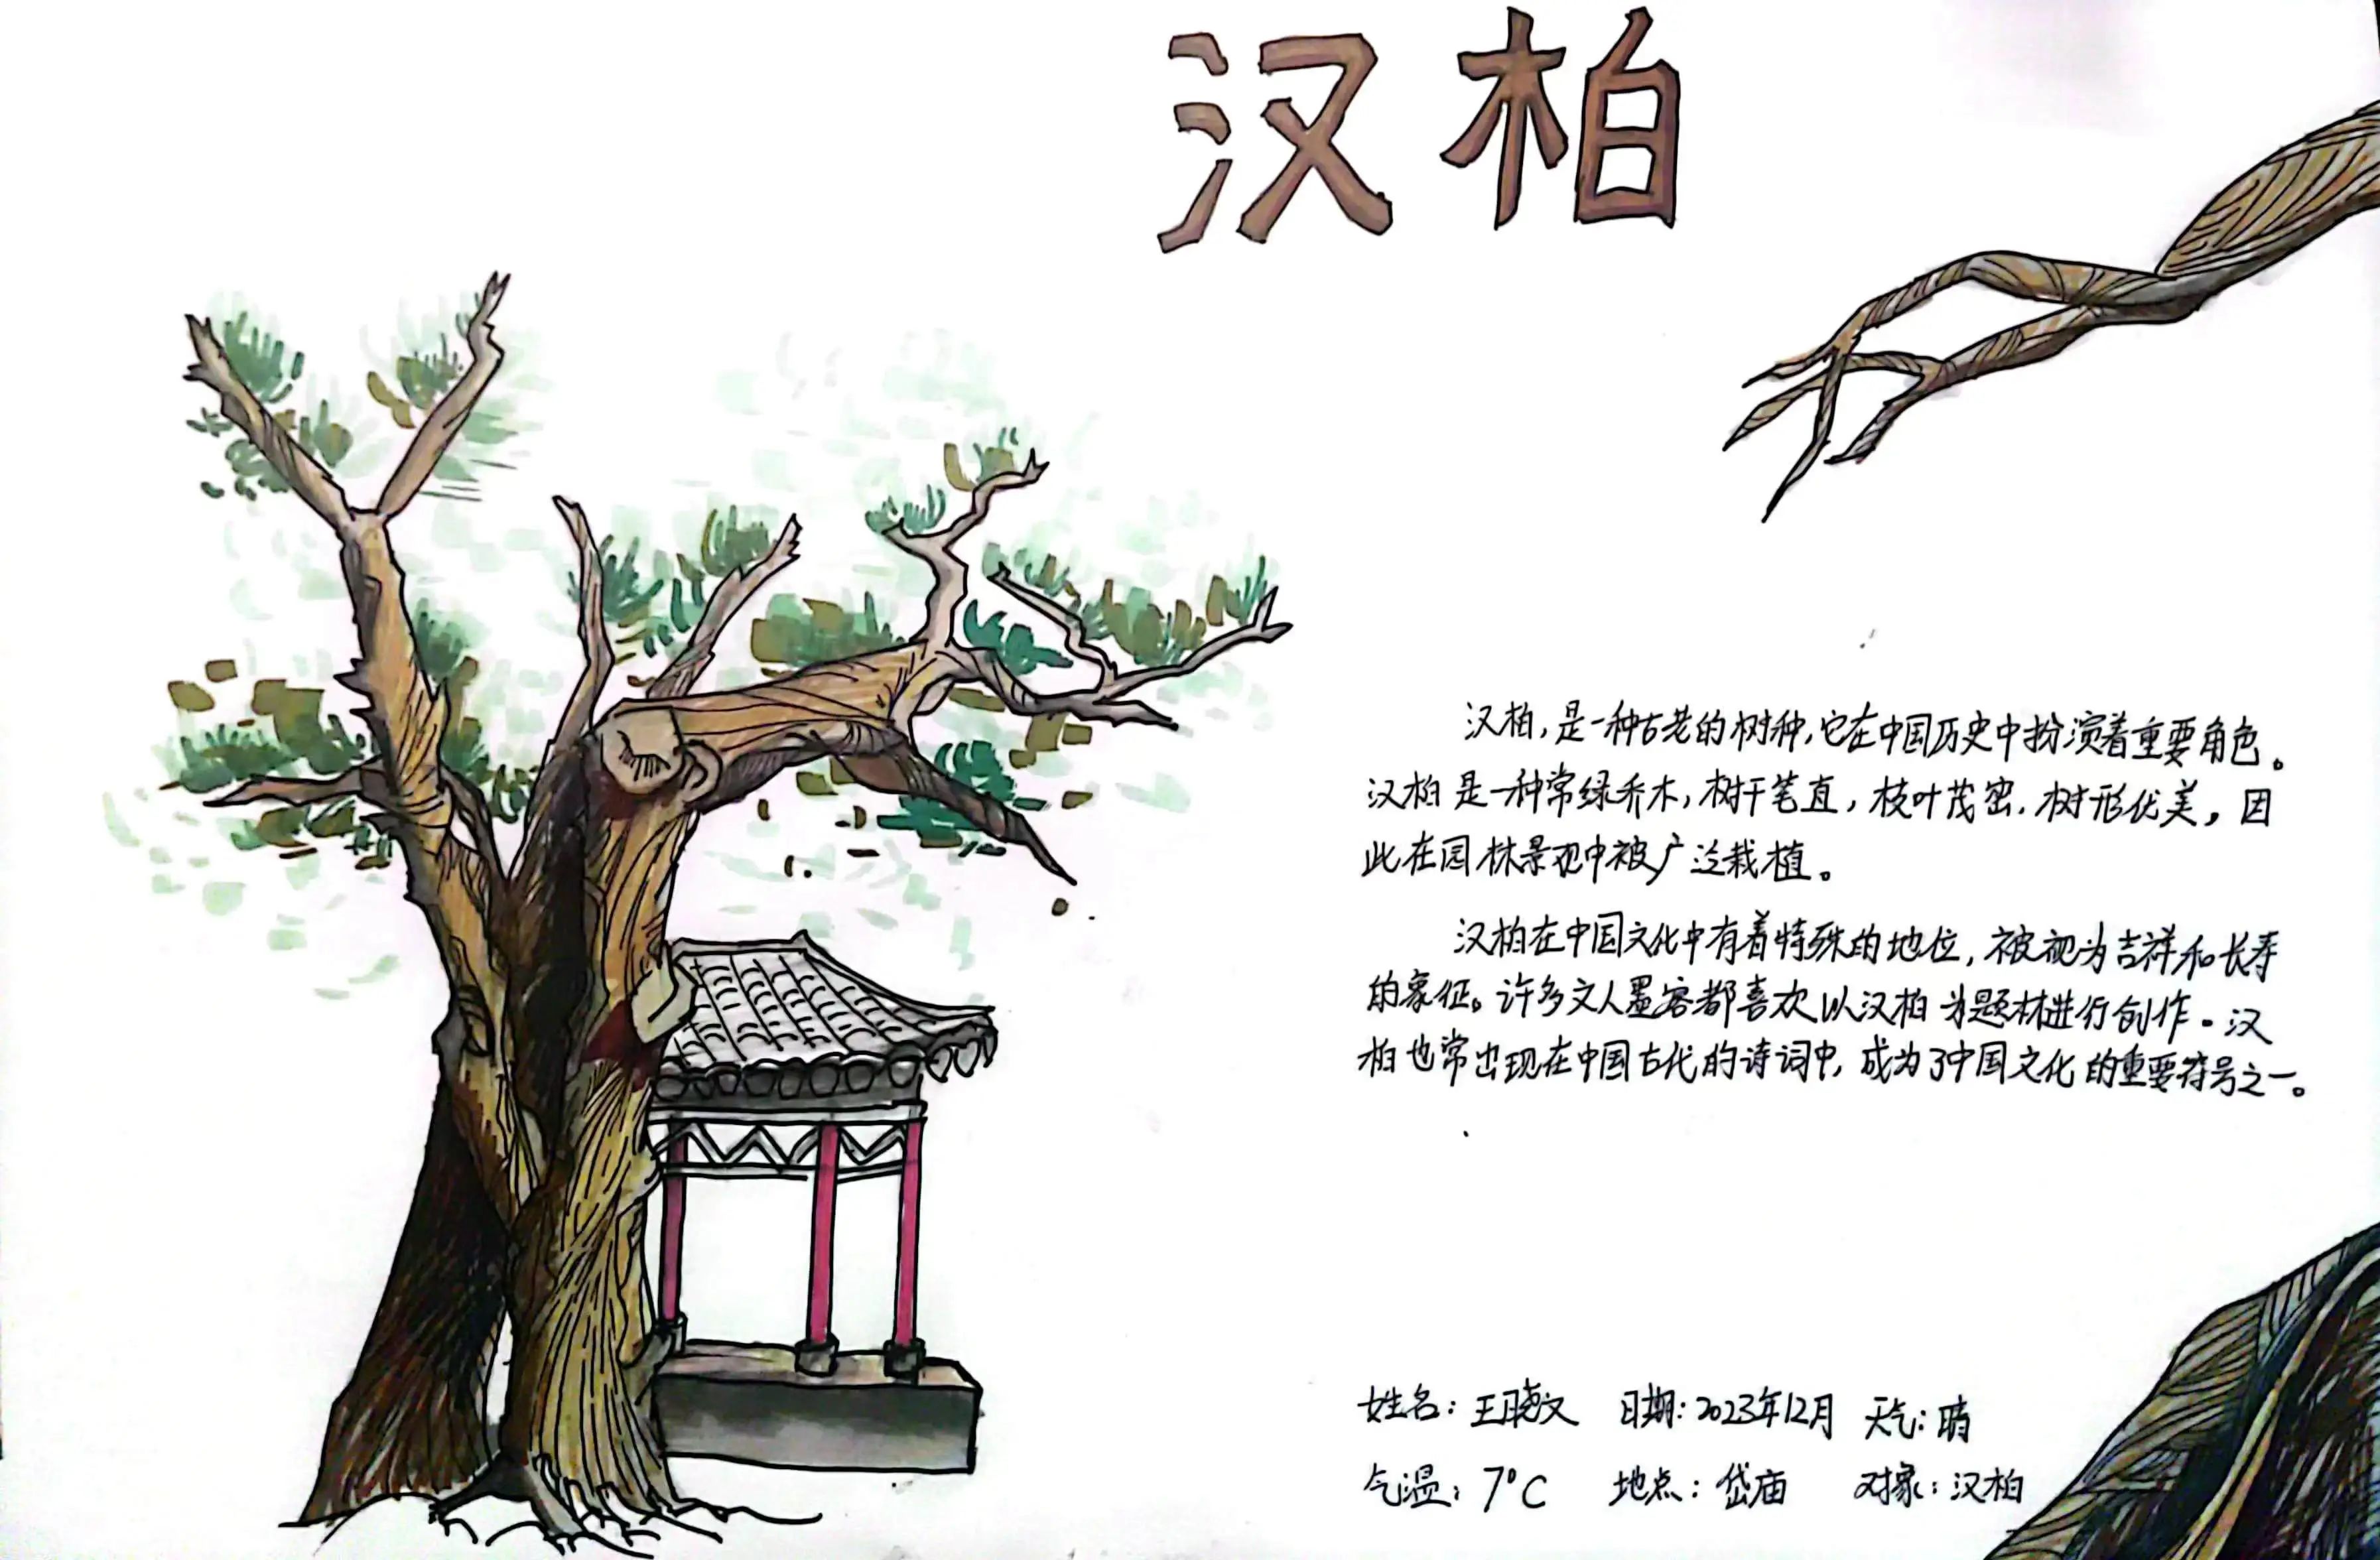 汉柏
汉柏,是一种古老的树种,它在中国历史中扮演着重要角色。
汉柏是一种常绿乔木,树干笔直,枝叶茂密.树形优美。因
此在园林景观中被广泛栽植。
汉柏在中国文化中有着特殊的地位,被视为吉祥和长寿
的象征。许多文人墨客都喜欢以汉柏为题材进行创作。汉
柏也常出现在中国古代的诗词中,成为了中国文化的重要符号之一。
姓名:王晓文 日期:2023年12月 天气:晴
气温:7°C 地点:岱庙 对象:汉柏